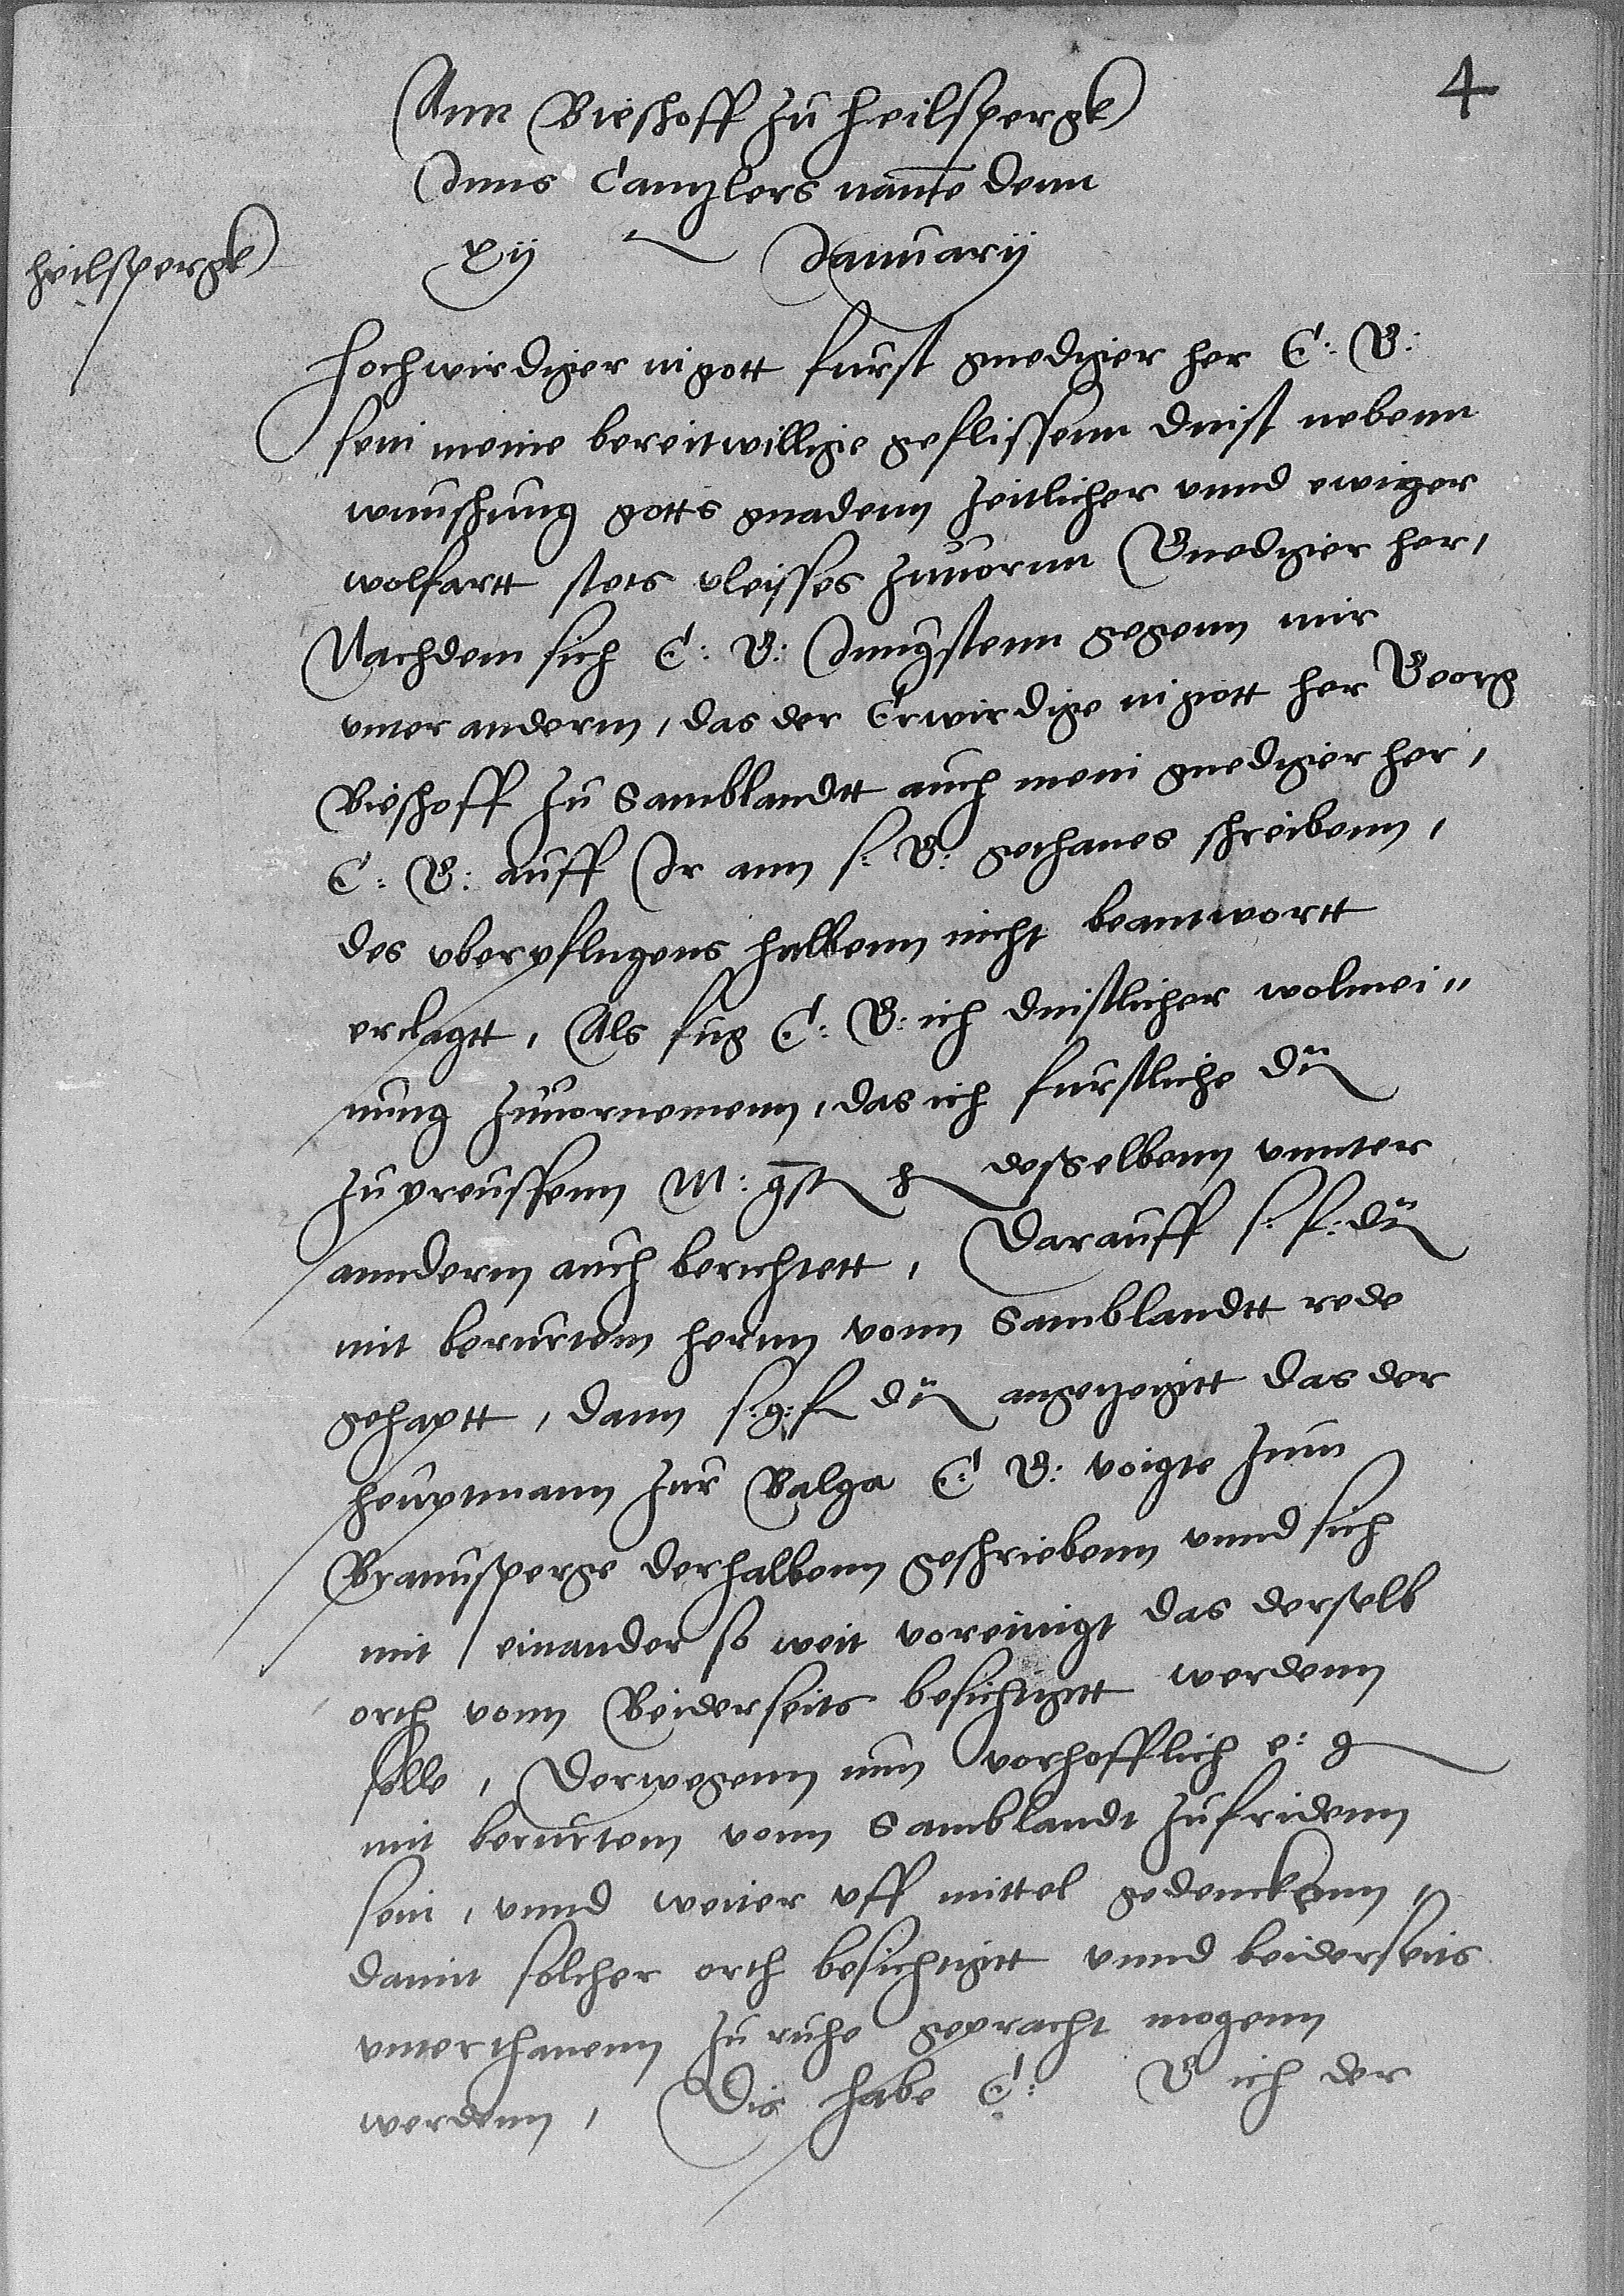 4
Ann Bieschoff zu heilspergk
Inns Canzlers name denn
xij Januarij
heilspergk
Hochwirdiger in gott furst gnediger her E: G:
sein meine bereitwillige geflissenn dinst nebenn
wunschung gotts gnadenn zeitlicher vnnd ewiger
wolfartt stets vleisses zuuornn Gnediger her,
Nachdem sich E: G: Jungstenn gegenn mir
vnter anderm, das der Erwirdige in gott her Georg
Bieschoff zu Samblandtt auch mein gnediger her,
E: G: auff Ir ann s: G: gethanes schreibenn,
des vberpflugens halbenn nicht beantwortt
erclagtt, Als fug E: G: ich dinstlicher wolmei"
nung zuuornemenn, das ich furstliche du
zu preussenn M: gst h desselbenn vnnter
annderm auch berichtett, Darauff s: f: du
mit berurtem hernn vonn Samblandtt rede
gehaptt, dann s: g: f du angezeigtt das der
heuptmann zur Balga E: G: voigte zum
Braunsperge derhalbenn geschriebenn vnnd sich
mit einander so weit voreinigt das derselb
orth vonn Beiderseits besichtigtt werdenn
solle, Derwegenn nun vorhofflich e: g
mit berurtem vonn Samblandt zufridenn
sein, vnnd weiter vff mittel gedenckenn,
damit solcher orth besichtigtt vnnd beiderseits
vnterthanenn zu ruhe gepracht mogenn
werdenn, Dis habe E: G ich der